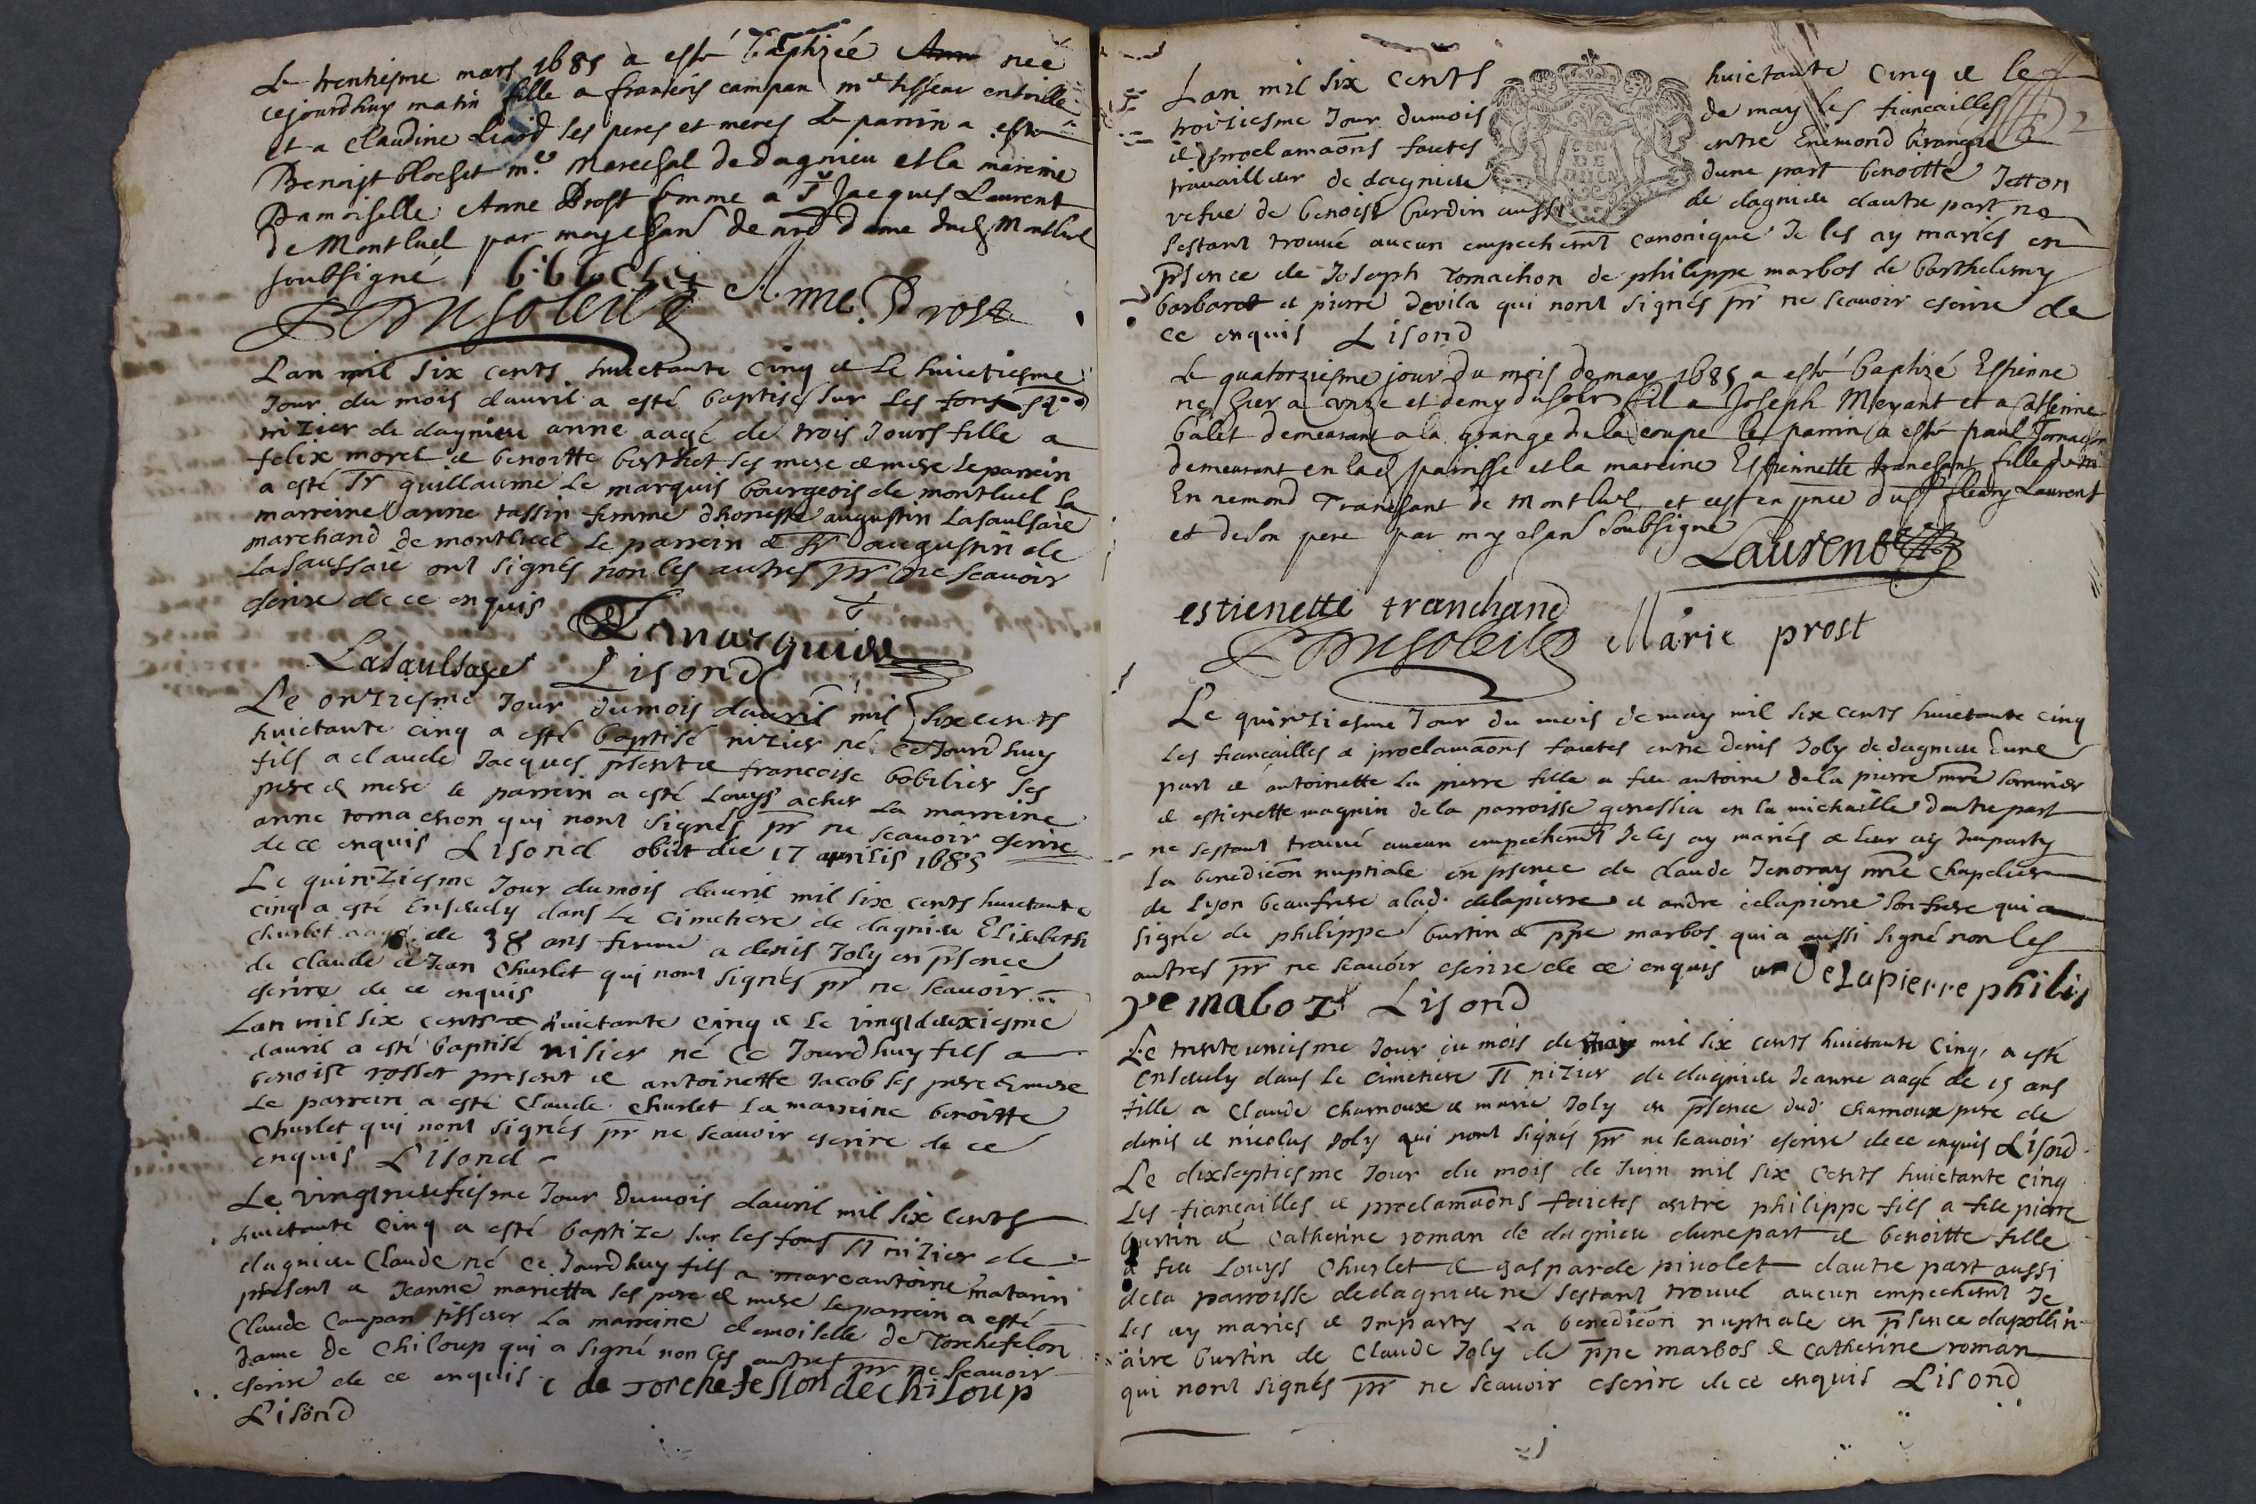 Le trentiesme mars 1685 a esté baptizée Anne née
cejourdhuy matin fille a francois campan me tisseur en toille
et a Claudine Liard ses peres et meres Le parrin a esté
Benoist blochet me Marechal de dagnieu et la mareine
Damoiselle Anne Prost femme a Sr Jacques Laurent
de Montluel par moy chan de nrd dame dud Montluel
soubsigné b: blochet
Anne Prost
Lan mil six cents huictante cinq et le huictiesme
Jour du mois dauril a esté baptisé sur les fons st
nizier de dagnieu anne aagé de trois Jours fille a
felix morel et benoitte berthet ses pere et mere le parrein
a esté Sr guillaume Le marquis bourgeois de montluel la
marreine anne tassin femme dhoneste augustin Lasaulsaie
marchand de montluel Le parrein et Sr augustin de
Lasaussaie ont signés non les autres pr ne scauoir
escrire de ce enquis
Lemarquis
Lasaulsaye Lisond
Le onziesme Jour du mois dauril mil six cents
huictante cinq a esté baptisé nizier né ce Jourd huy
fils a claude Jacques psent et francoise bobilier ses
pere et mere le parrein a esté Louys acher La marreine
anne tomachon qui nont signés pr ne scauoir escrire
de ce enquis Lisond obiit die 17 aprilis 1685
Le quinziesme Jour du mois dauril mil six cents huictante
cinq a esté Enseuely dans Le Cimetiere de dagnieu Elizabeth
Churlet aagé de 38 ans femme a denis Joly en psence
de Claude et Jean Churlet qui nont signés pr ne scauoir
escrire de ce enquis
Lan mil six cents huictante cinq et Le vingt deuxiesme
dauril a esté baptisé nisier né Ce Jourdhuy fils a
benoist rosset present et antoinette Jacob ses pere et mere
Le parrein a esté Claude Churlet La marreine benoitte
Churlet qui nont signés pr ne scauoir escrire de ce
enquis Lisond
Le vingtneufiesme Jour du mois dauril mil six cents
huictante cinq a esté baptizé sur les fons st nizier de
dagnieu Claude né ce Jourdhuy fils a marcantoine matarin
présent et Jeanne marietta ses pere et mere Le parrein a esté
Claude Campan tisseur La marreine demoiselle de Torchefelon
dame de Chiloup qui a signé non les autres pr ne scauoir
escrire de ce enquis c de Torchefelon de chiloup
Lisond
2
Lan mil six cents huictante cinq et le
troiziesme Jour dumois de may les fiancailles
et proclamaons faites entre Enemond
trauailleur de dagnieu dune part benoitte Jetton
vefue de benoist burdin aussi de dagnieu dautre part ne
sestant trouué aucun empechemt canonique Je les ay mariés en
psence de Joseph tomachon de philippe marbos de barthelemy
barbaret et pierre devila qui nont signés pr ne scauoir escrire de
ce enquis Lisond
Le quatorziesme jour du mois de may 1685 a esté baptizé Estienne
né hier a onze et demy du soir fil a Joseph Meyant et a Catherine
balet demeurant a la grange de la coupe le parrin a esté paul Tomachon
demeurant en lad parroisse et la mareine Estiennette tranchant fille de me
Ennemond Tranchant de Montluel et ce en pnce du Sr fleury Laurent
et de son pere par moy chan soubsigné
Laurent
estienette tranchand
Marie prost
Le quinziesme Jour du mois de may mil six cents huictante cinq
Les fiancailles et proclamaons faites entre denis Joly de dagnieu dune
part et antoinette La pierre fille a feu antoine de la pierre mre
et estienette magnin de la parroisse genessia en la michaille dautre part
ne sestant trouué aucun empechemt Je les ay mariés et leur ay Imparty
La benediction nuptiale en psence de claude Jenoray mre chapelier
de Lyon beaufrere a lad. delapierre et andre delapierre son frere qui a
signé de philippe burtin et ppe marbos qui a aussi signé non les
autres pr ne scauoir escrire de ce enquis Delapierre philip
pe maboz Lisond
Le trente uniesme Jour du mois de may mil six cents huictante Cinq a esté
Enseuely dans Le Cimetiere st nizier de dagnieu Jeanne aagé de 15 ans
fille a Claude charnoux et marie Joly en psence dud charnoux pere de
denis et nicolas Joly qui nont signés pr ne scauoir escrire de ce enquis Lisond
Le dixseptiesme Jour du mois de Juin mil six Cents huictante cinq
Les fiancailles et proclamaons faictes entre philippe fils a feu pierre
burtin et catherine roman de dagnieu dune part et benoitte fille
a feu Louys Churlet et gasparde piuolet dautre part aussi
de la parroisse de dagnieu ne sestant trouué aucun empechemt Je
Les ay mariés et Imparty La benediction nuptiale en psence dapollin
aire burtin de Claude Joly de ppe marbos et catherine roman
qui nont signés pr ne scauoir escrire de ce enquis Lisond